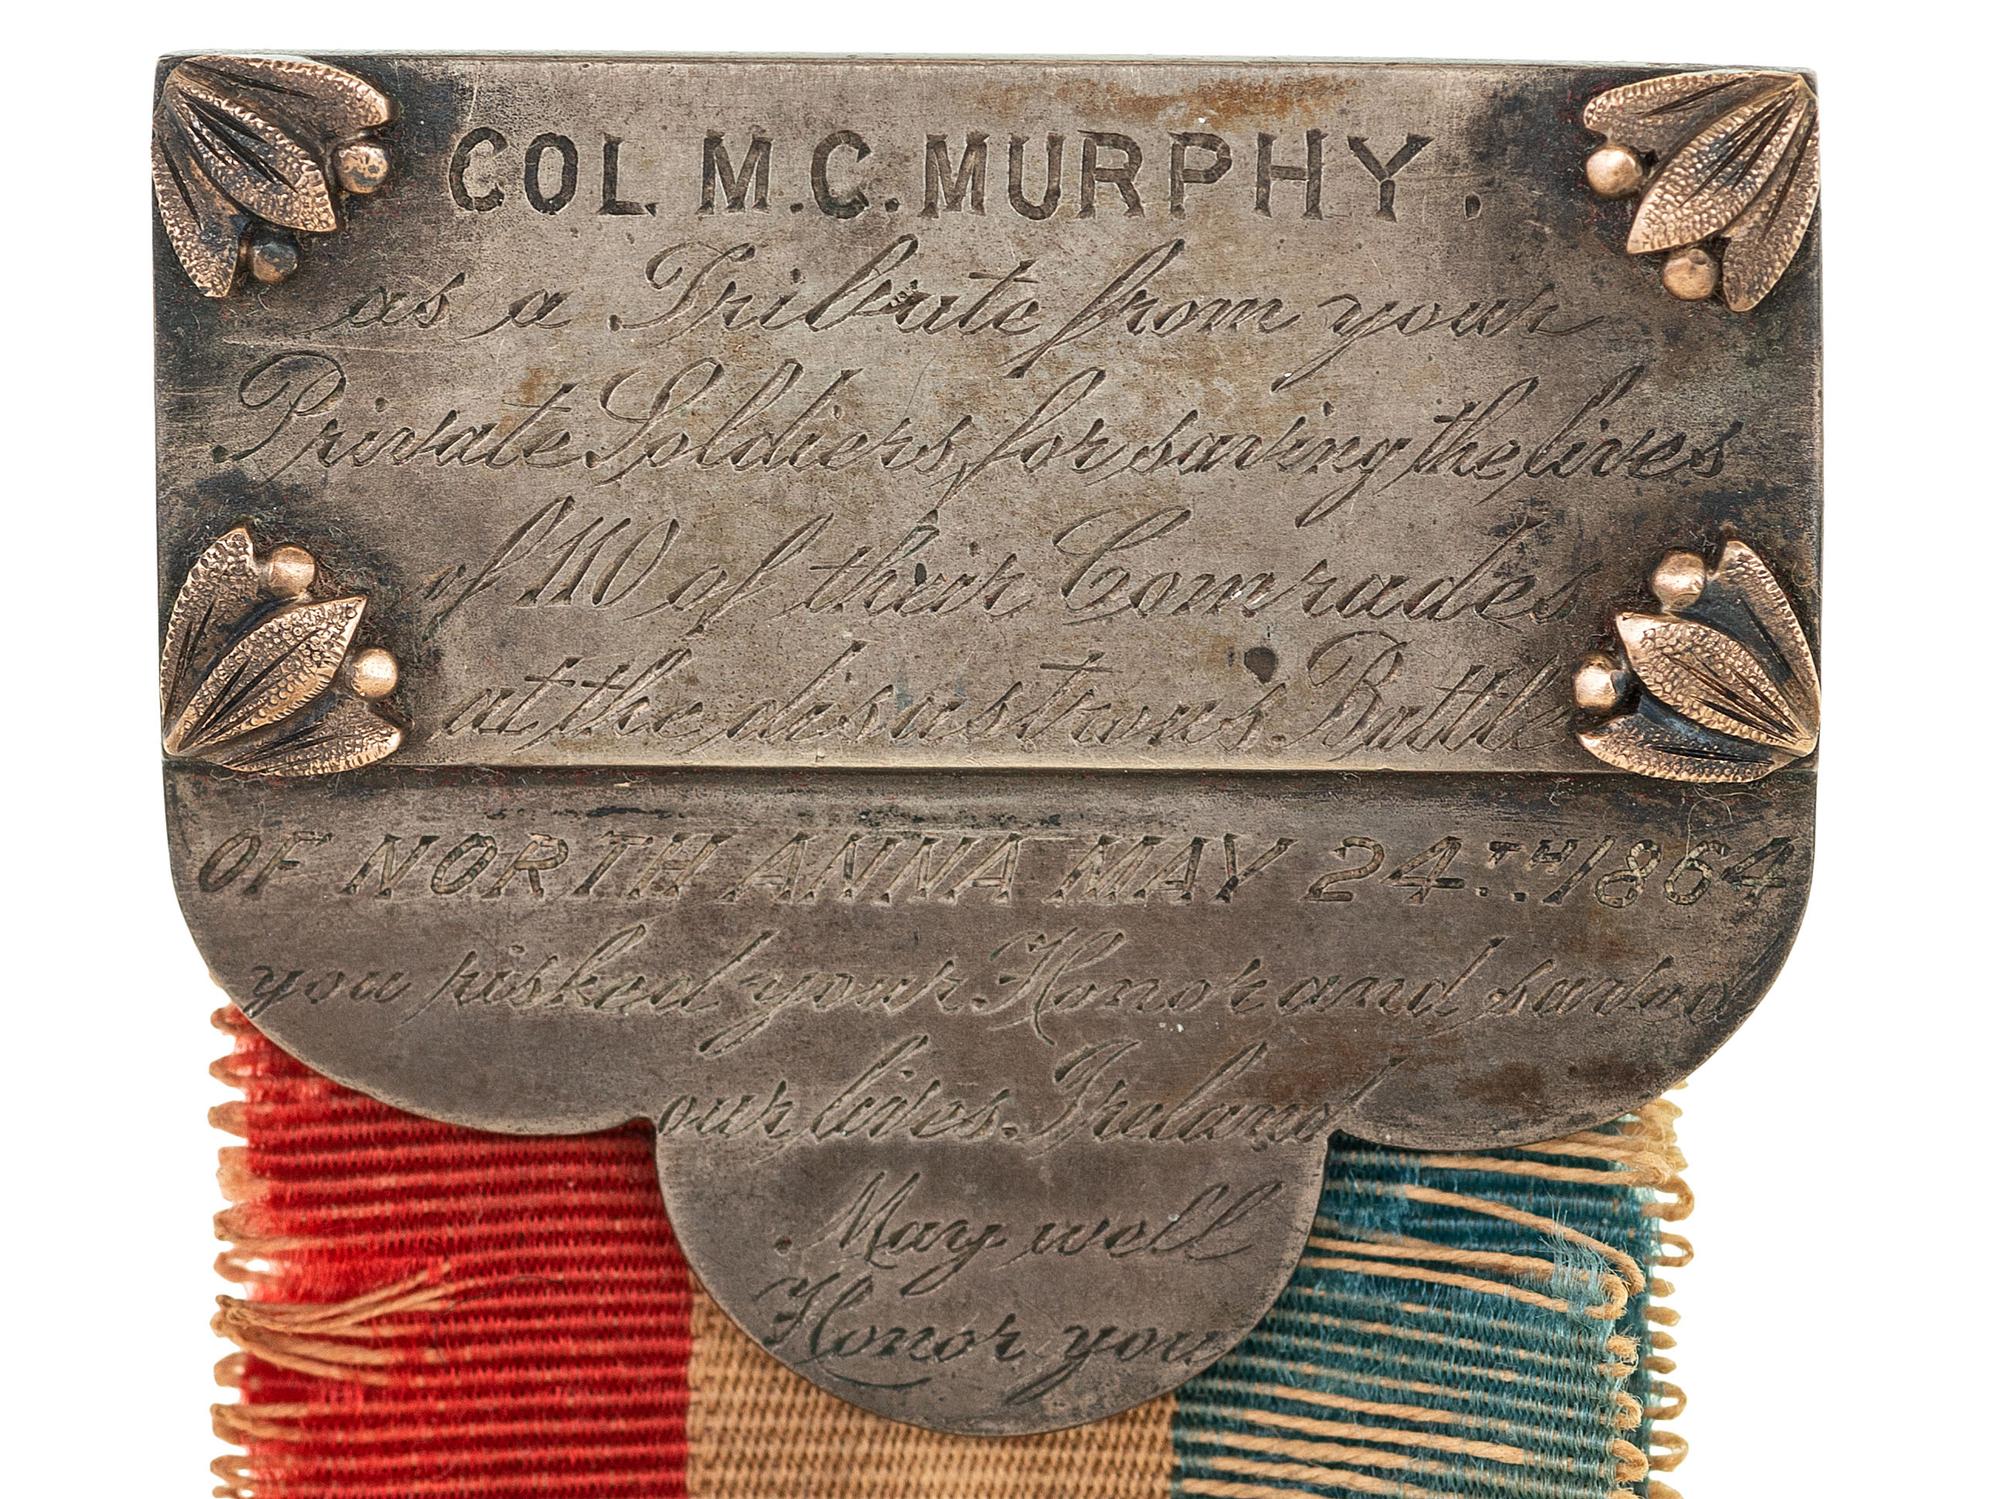 COL. M.C. MURPHY.
as a Tribute from your
Private Soldiers, for saving the lives
of 110 of their Comrades
at the disastrous Battle
OF NORTH ANNA MAY 24TH 1864
you risked your Honor and saved
our lives. Ireland
May well
Honor you